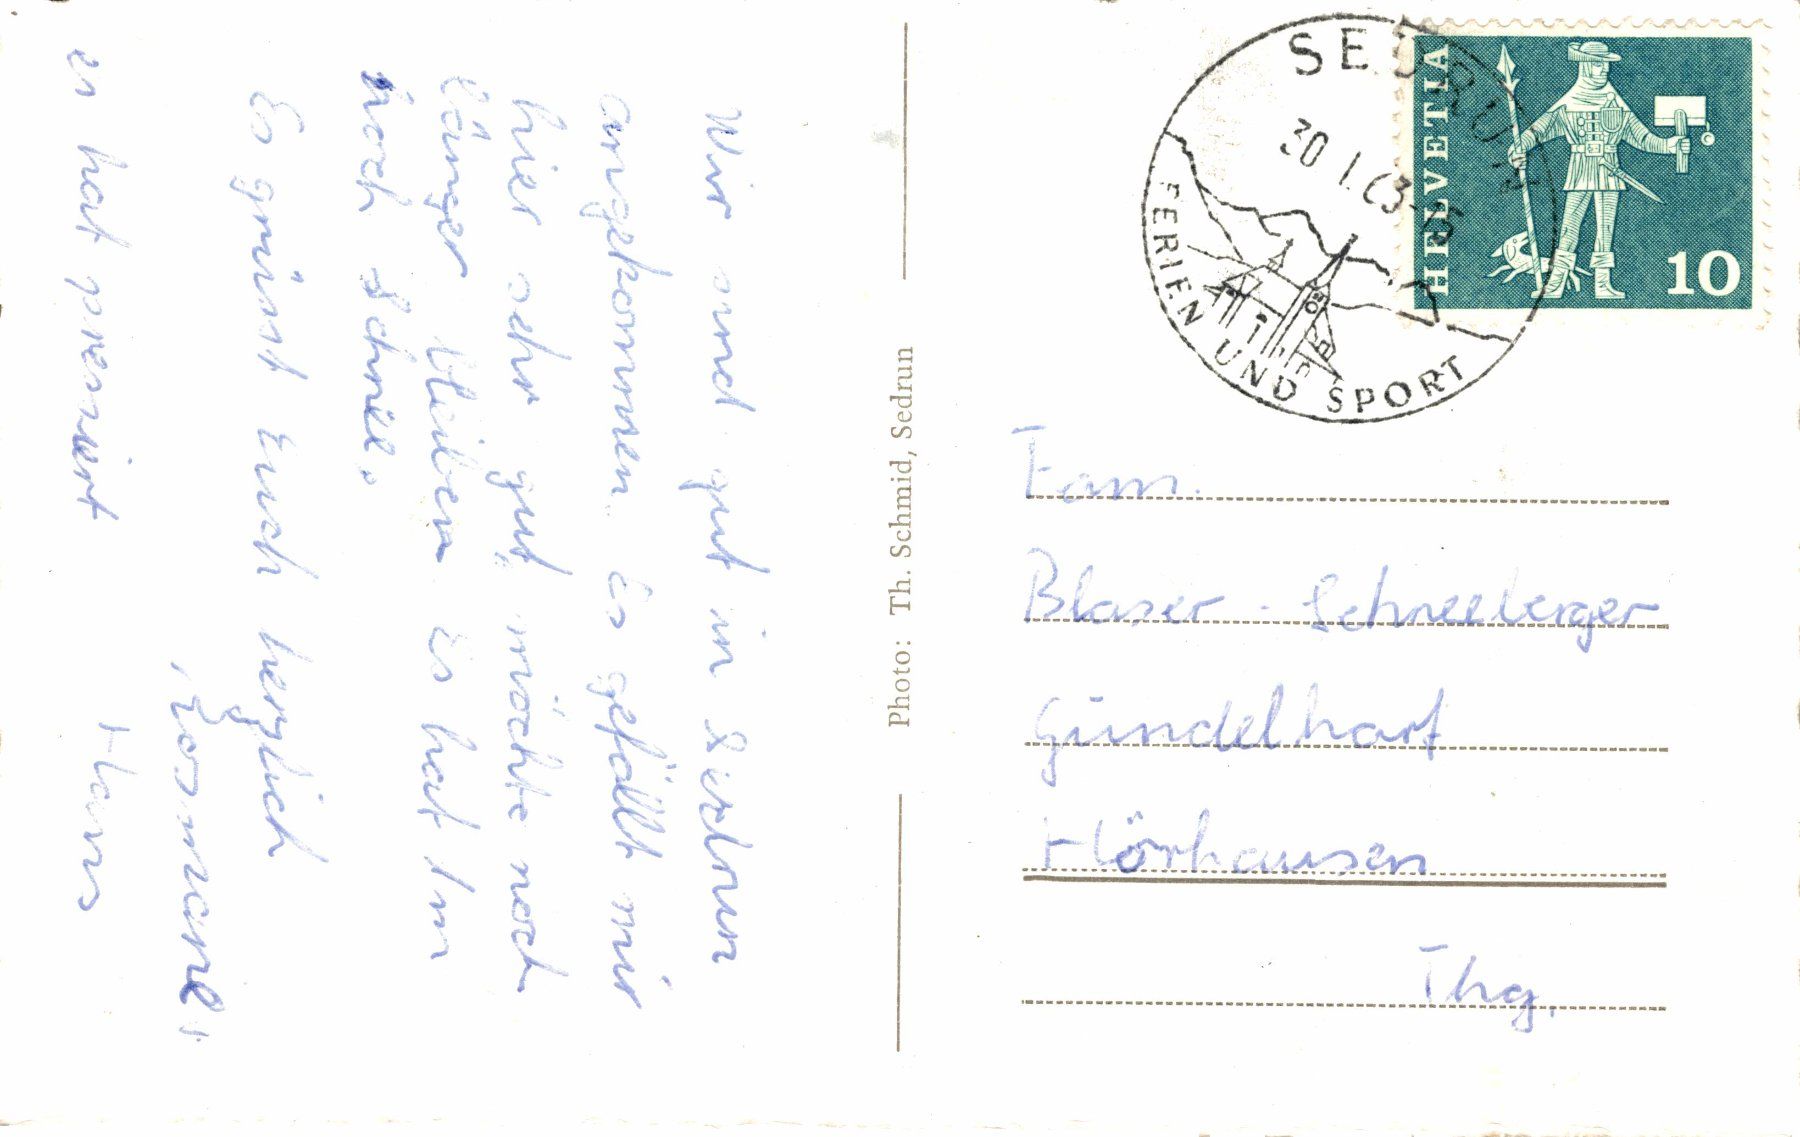 Wir sind gut in Sedrun
angekommen. Es gefällt mir
hier sehr gut, möchte noch
länger bleiben es hat 1 m
hoch Schnee.
Es grüsst Euch herzlich
"Rosmarie"
es hat pressiert
Hans
Photo: Th. Schmid, Sedrun
SEDRUN
30.1.63-
FERIEN UND SPORT
HELVETIA
10
Fam.
Blaser - Schneeberger
Gündelhart
Hörhausen
Thg.